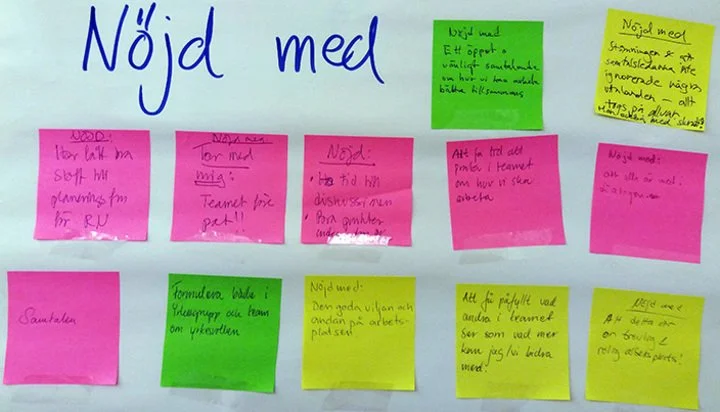 Nöjd med
Nöjd med
Ett öppet o
vänligt samtalande
om hur vi kan arbeta
bättre tillsammans
Nöjd med
Stämningen & att
samtalsledarna inte
ignorerade några
uttalanden – allt
togs på allvar
NÖJD:
Har fått bra
stoff till
planerings fm
för RU
Nöjd mig
Tar med
mig:
Teamet före
pat!!
Nöjd:
tid till
diskussionen
Bra punkter
Att få tid att
prata i teamet
om hur vi ska
arbeta
Nöjd med:
att alla är med i
dialogen
Samtalen
Formulera både i
Yrkesgrupp och team
om yrkesrollen
Nöjd med:
Den goda viljan och
andan på arbets-
platsen
Att få påfyllt vad
andra i teamet
ser som vad mer
kan jag/vi bidra
med!
Nöjd med
Att detta är
en trevlig &
rolig arbetsplats!